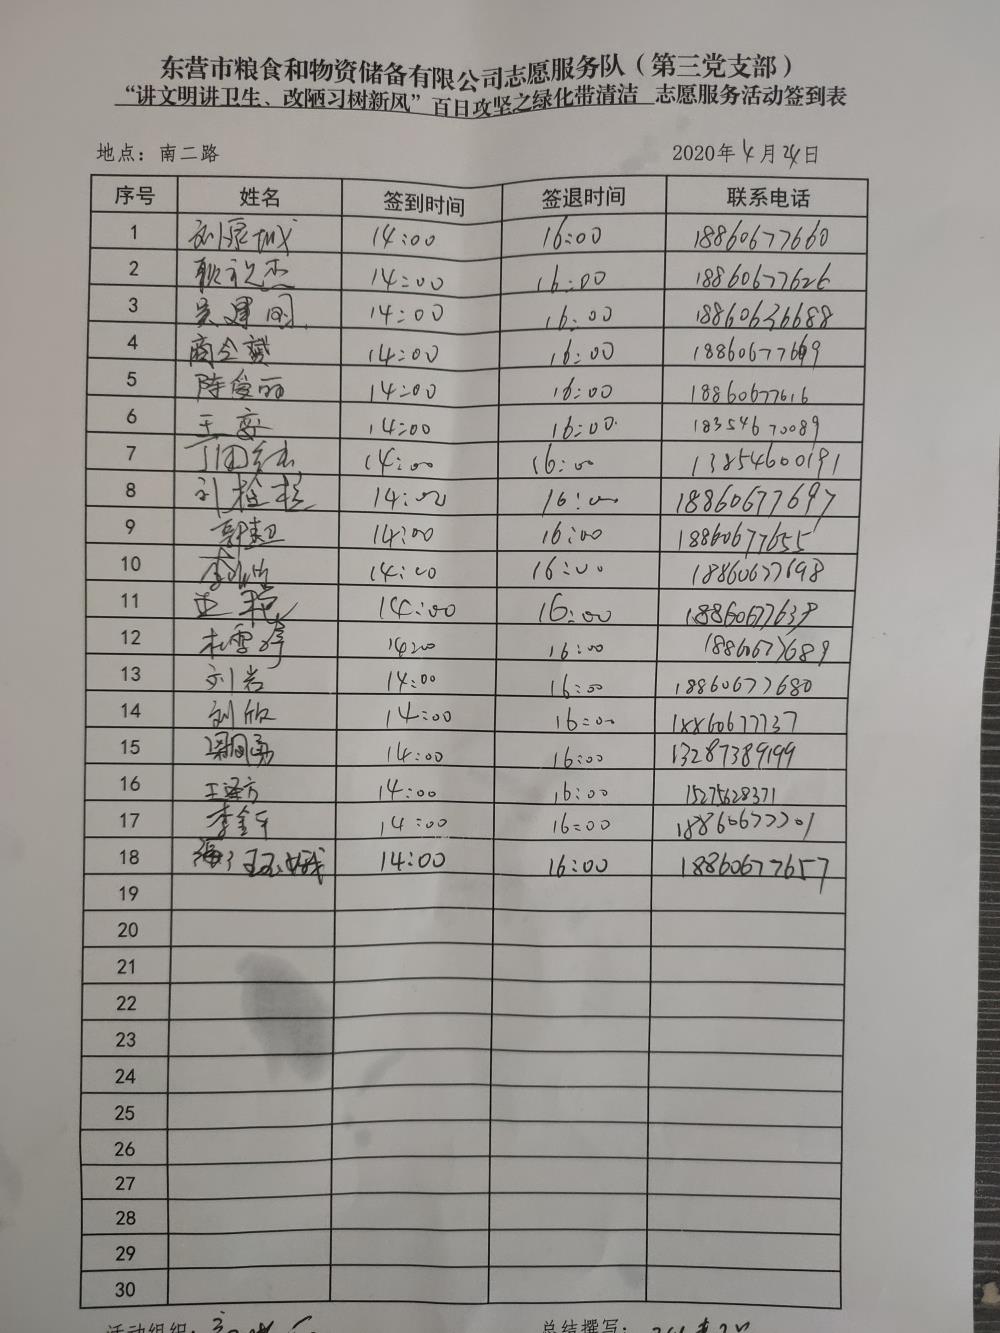 东营市粮食和物资储备有限公司志愿服务队（第三党支部）
“讲文明讲卫生、改陋习树新风”百日攻坚之绿化带清洁 志愿服务活动签到表
地点：南二路 2020年4月24日
序号 姓名 签到时间 签退时间 联系电话
1 14:00 16:00 18860677660
2 14:00 16:00 18860677626
3 吴建国 14:00 16:00 18860636688
4 14:00 16:00 188606776
5 陈俊丽 14:00 16:00 18860677616
6 14:00 16:00 18354670089
7 14:00 16:00 13854600191
8 14:00 16:00 18860677697
9 郭超 14:00 16:00 18860677655
10 14:00 16:00 18860677698
11 14:00 16:00 18860677639
12 杜雪婷 1400 16:00 18860677689
13 刘岩 14:00 16:00 18860677680
14 刘欣 14:00 16:00 18860677737
15 14:00 16:00 13287389199
16 14:00 16:00 15275628371
17 李金 14:00 16:00 18860677701
18 14:00 16:00 18860677657
19
20
21
22
23
24
25
26
27
28
29
30
活动组织： 总结撰写：